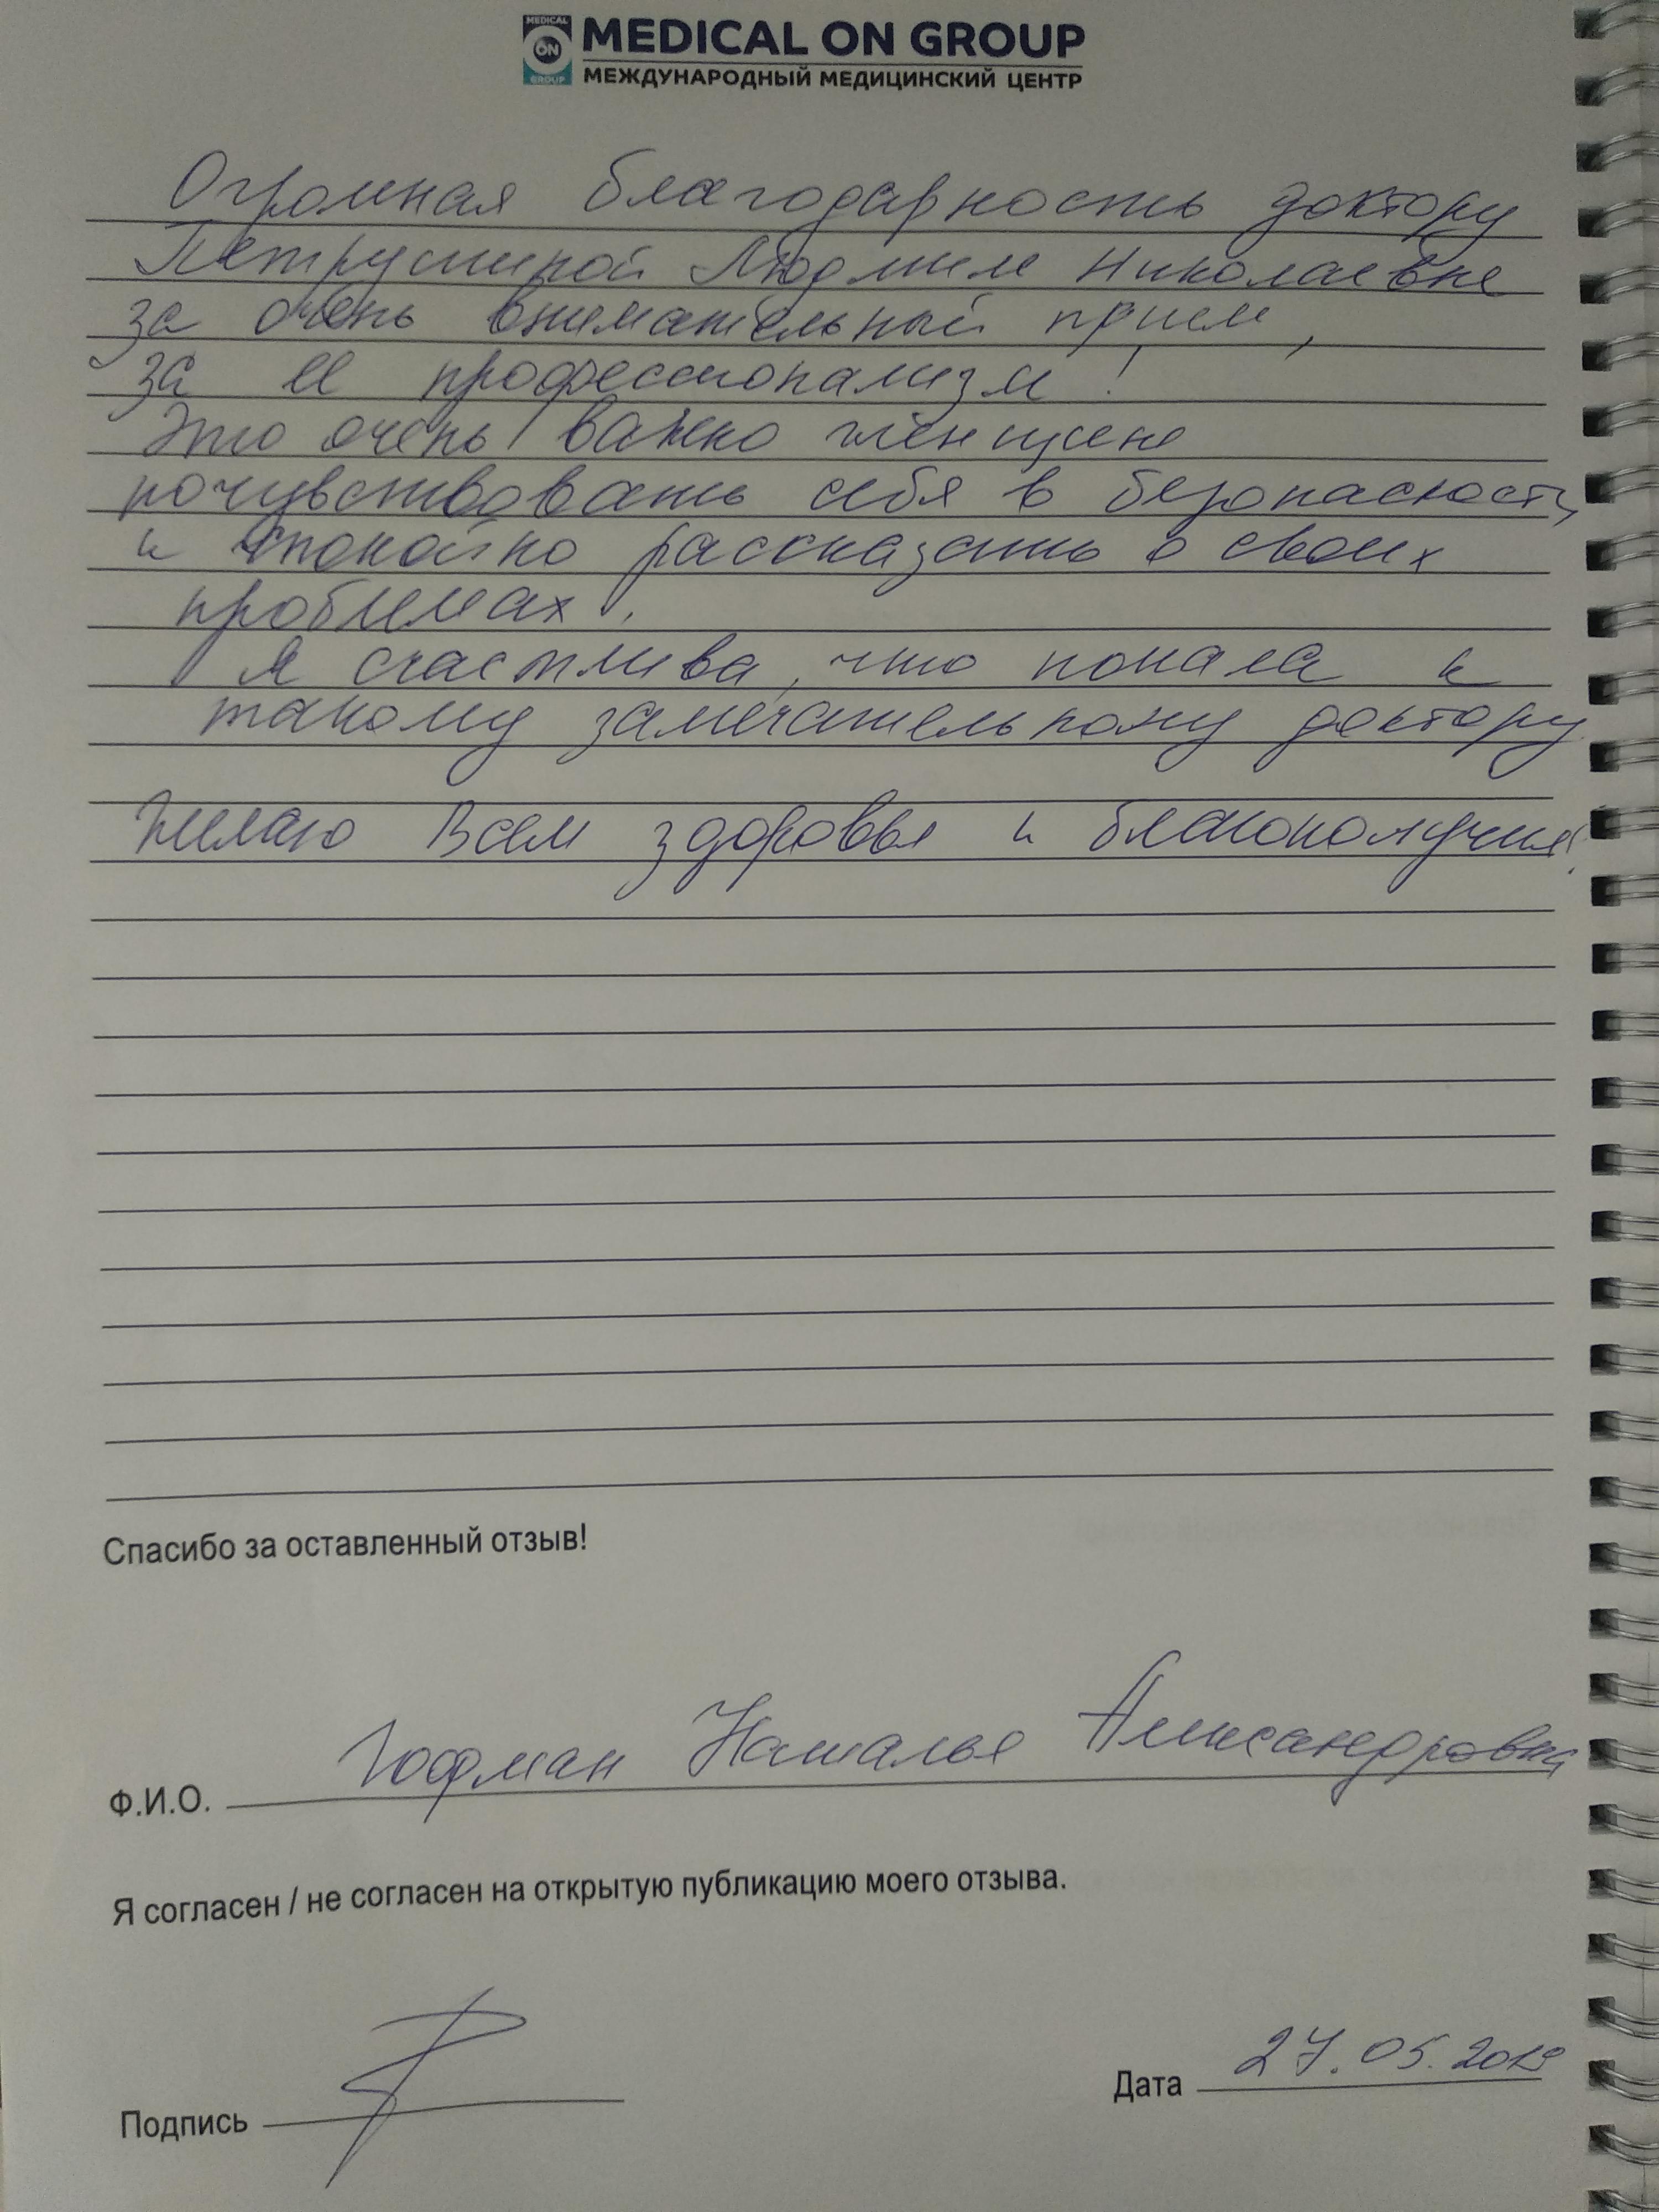 MEDICAL ON GROUP
MEDICAL ON GROUP
МЕЖДУНАРОДНЫЙ МЕДИЦИНСКИЙ ЦЕНТР
Огромная благодарность доктору
Петрушиной Людмиле Николаевне
за очень внимательный прием,
за ее профессионализм!
Это очень важно женщине
почувствовать себя в безопасности
и спокойно рассказать о своих
проблемах.
Я счастлива, что попала к
такому замечательному доктору
Желаю Всем здоровья и благополучия!
Спасибо за оставленный отзыв!
Ф.И.О. Гофман Наталья Александровна
Я согласен / не согласен на открытую публикацию моего отзыва.
Подпись
Дата 27.05.2019